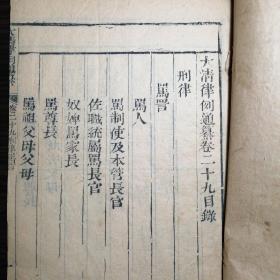 大清律例通纂卷二十九目錄
刑律
罵詈
罵人
罵制使及本管長官
佐職統屬罵長官
奴婢罵家長
罵尊長
罵祖父母父母